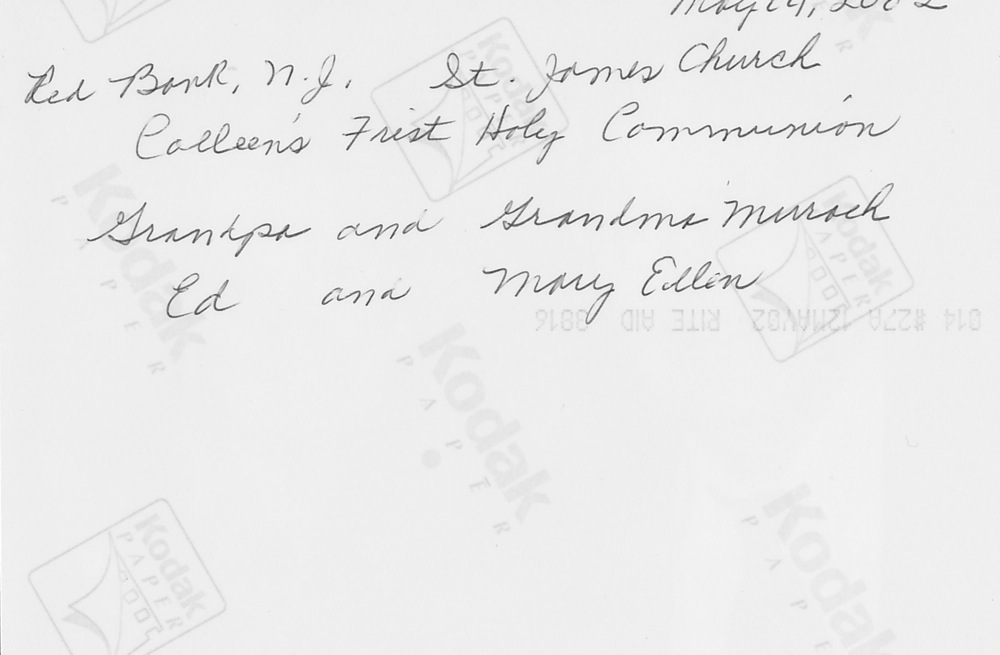 May 14, 2002
Red Bank, N.J. St. James Church
Colleen's Frist Holy Communion
Grandpa and Grandma Murach
Ed and Mary Ellen
014 #27A 12MAY02 RITE AID 3816
Kodak
PAPER
Kodak
PAPER
Kodak
PAPER
Kodak
PAPER
Kodak
PAPER
Kodak
PAPER